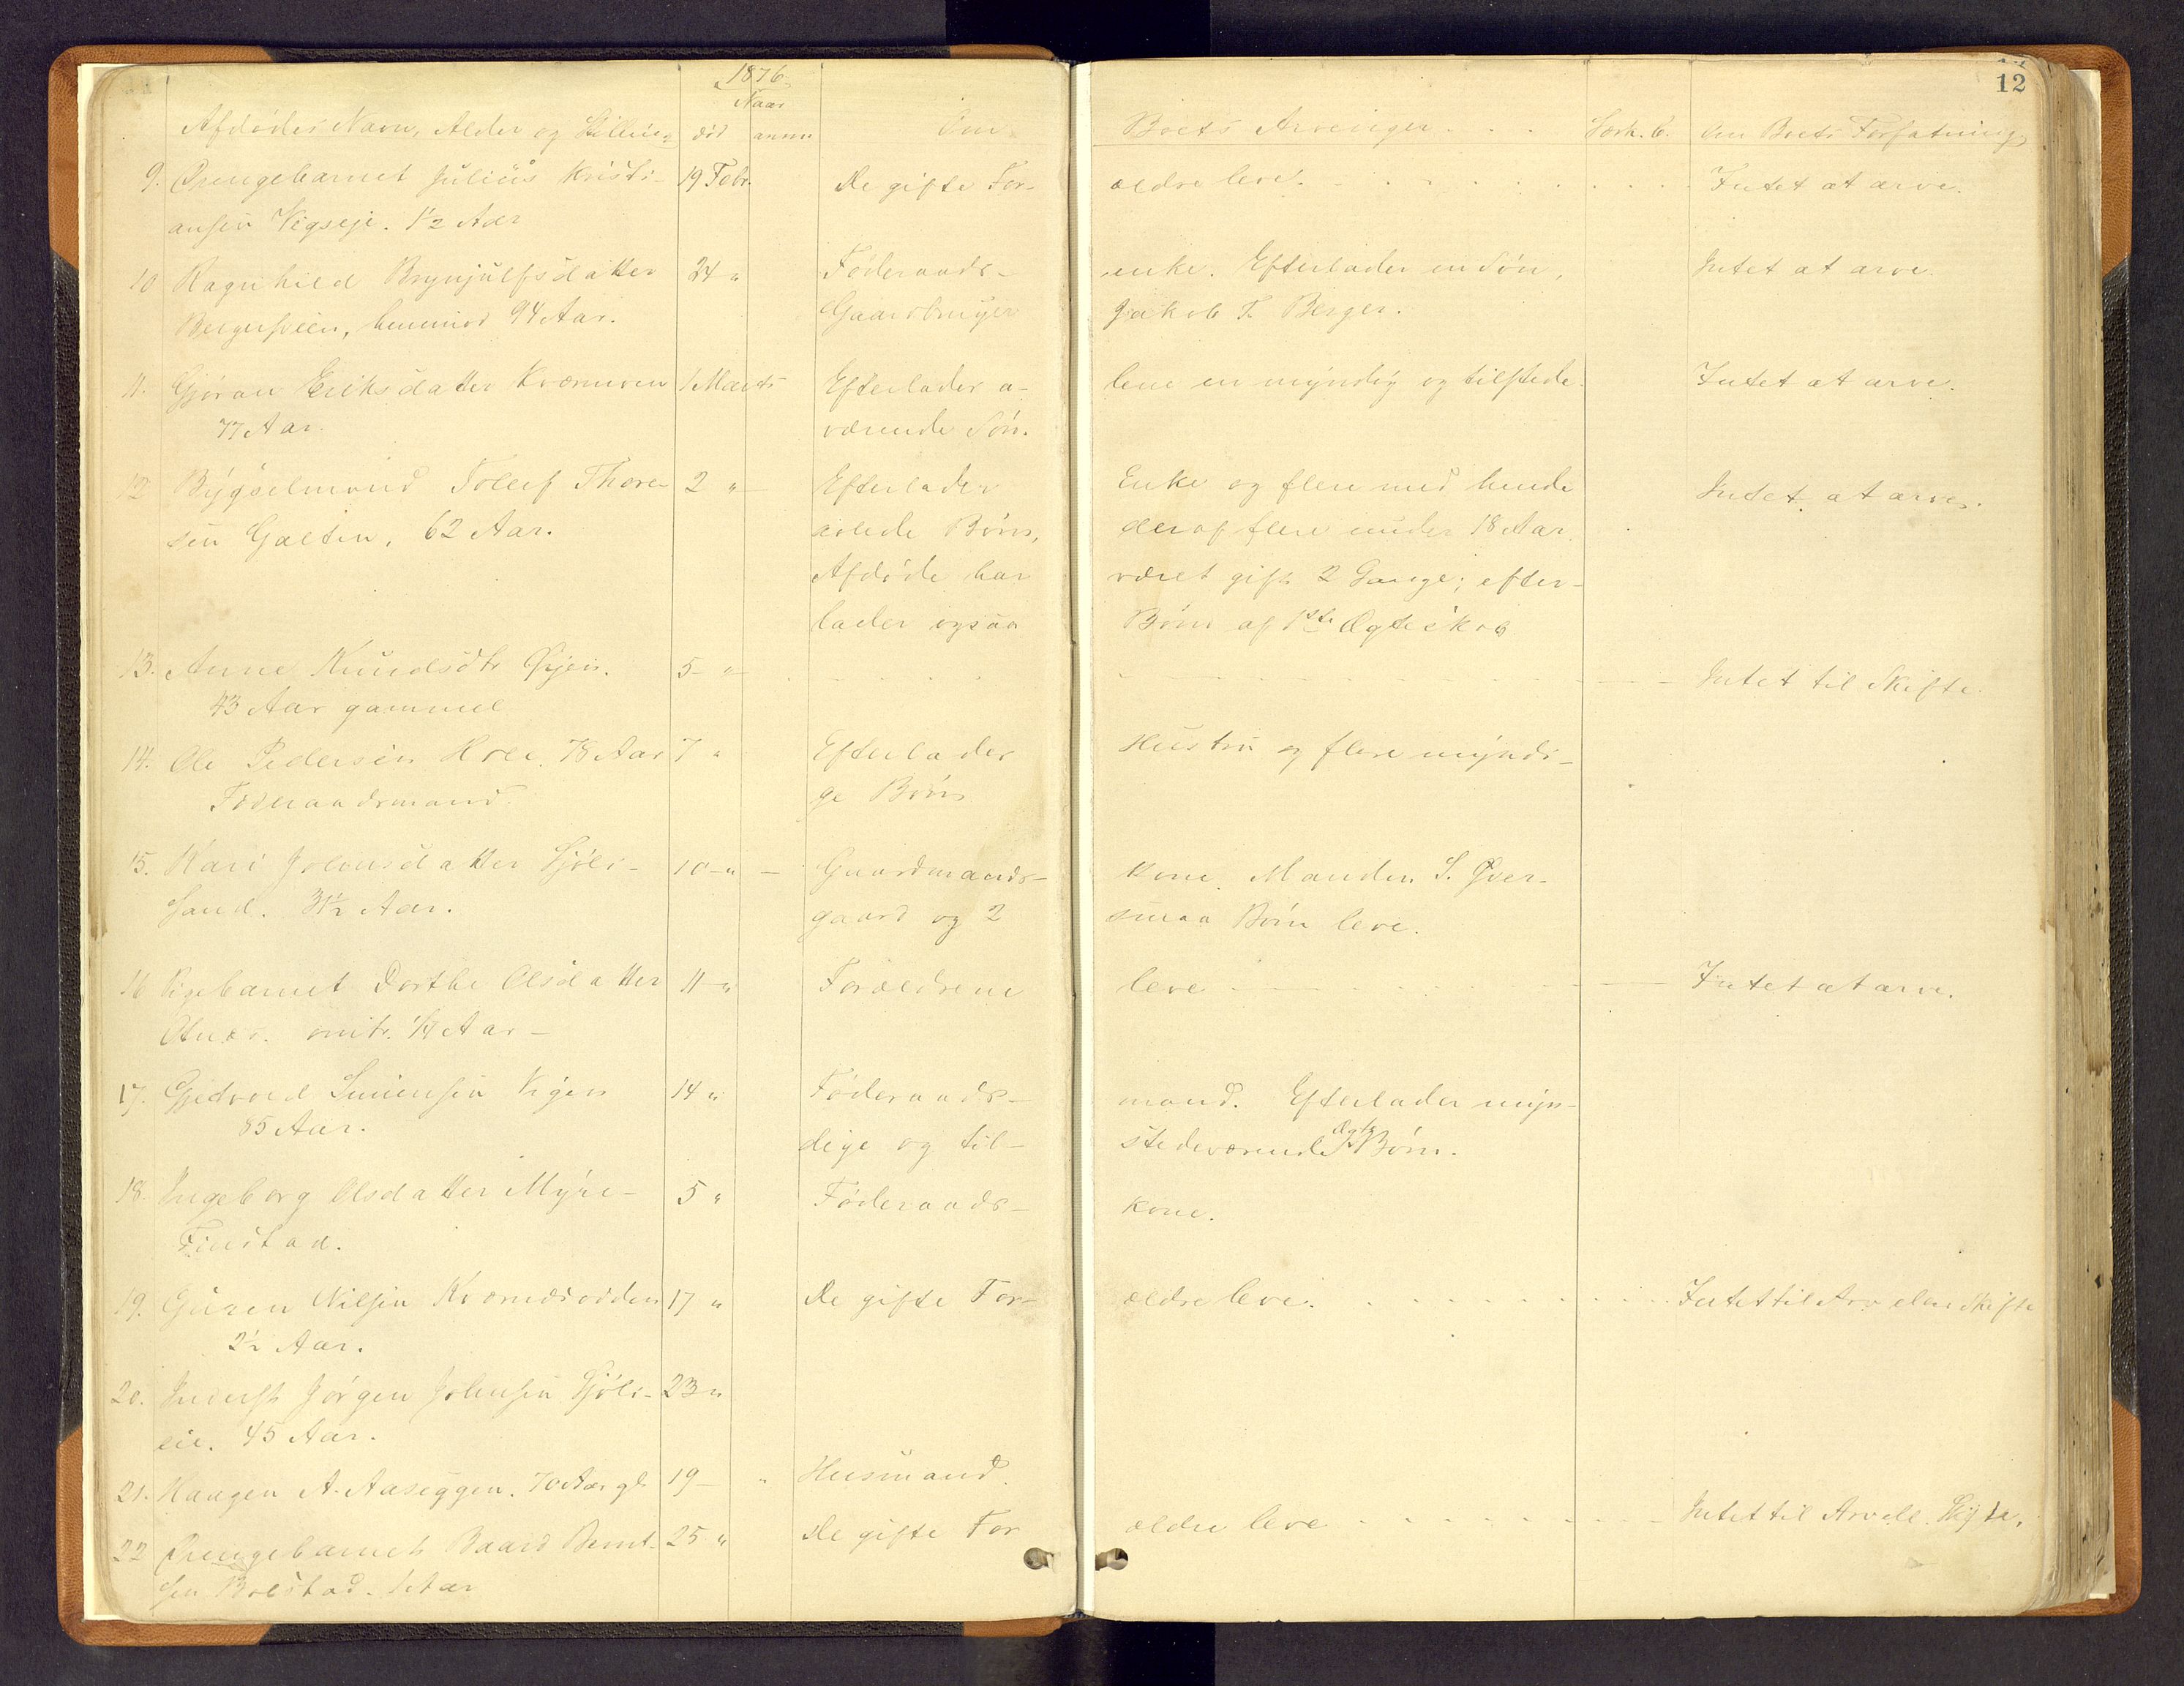 12
1876
Naar
Afdødes Navn, Alder og Stilling død anm. Om Boets Arvinger . . . Særk. B. Om Boets Forfatning
9. Drengebarnet Juliüs Kristi- 19 Febr. De gifte For- ældre leve. Intet at arve.
ansen Vigseje. 1½ Aar
10 Ragnhild Brynjulfsdatter 24 " Føderaads- enke. Efterlader en Søn, Intet at arve.
Bergersveen, henimod 94 Aar. Gaardbruger Jakob T. Berger.
11. Gjøran Eriksdatter Kværnven 1 Marts Efterlader a- lene en myndig og tilstede- Intet at arve.
77 Aar. værende Søn.
12 Bygselmand Tollef Thore- 2 " Efterlader Enke og flere med hende Intet at arve.
sen Galten, 62 Aar. avlede Børn, deraf flere under 18 Aar.
Afdøde har været gift 2 Gange; efter-
lader ogsaa Børn af 1ste Ægteskab
13. Anne Knudsdtr Øyen. 5 - " - Intet til Skifte.
43 Aar gammel
14. Ole Pedersen Hoel. 78 Aar 7 " Efterlader Hustru og flere myndi-
Føderaadsmand. ge Børn
15. Kari Johnsdatter Sjøli- 10 - " - Gaardmands- kone. Manden S. Øver-
sand. 31½ Aar. gaard og 2 smaa Børn leve.
16 Pigebarnet Dorthe Olsdatter 11 - " Forældrene leve Intet at arve.
omtr. ¼ Aar -
17. Simensen Vigen 14 " Føderaads- mand. Efterlader myn-
85 Aar. dige og til- stedeværende ægte Børn.
18. Ingeborg Olsdatter Myre- 5 " Føderaads- kone.
Finstad.
19. Nilsen Kværnesodden 17 " De gifte For- ældre leve. Intet til Arv eller Skifte
2½ Aar.
20. Inderst Jørgen Johnsen Sjøli- 23 "
eie. 45 Aar.
21. Haagen A. Aaseggen. 70 Aar gl. 19 - " Husmand.
22 Drengebarnet Baard Bernt- 25 " De gifte For ældre leve Intet til Arv ell. Skifte.
sen Bolstad. 1 Aar